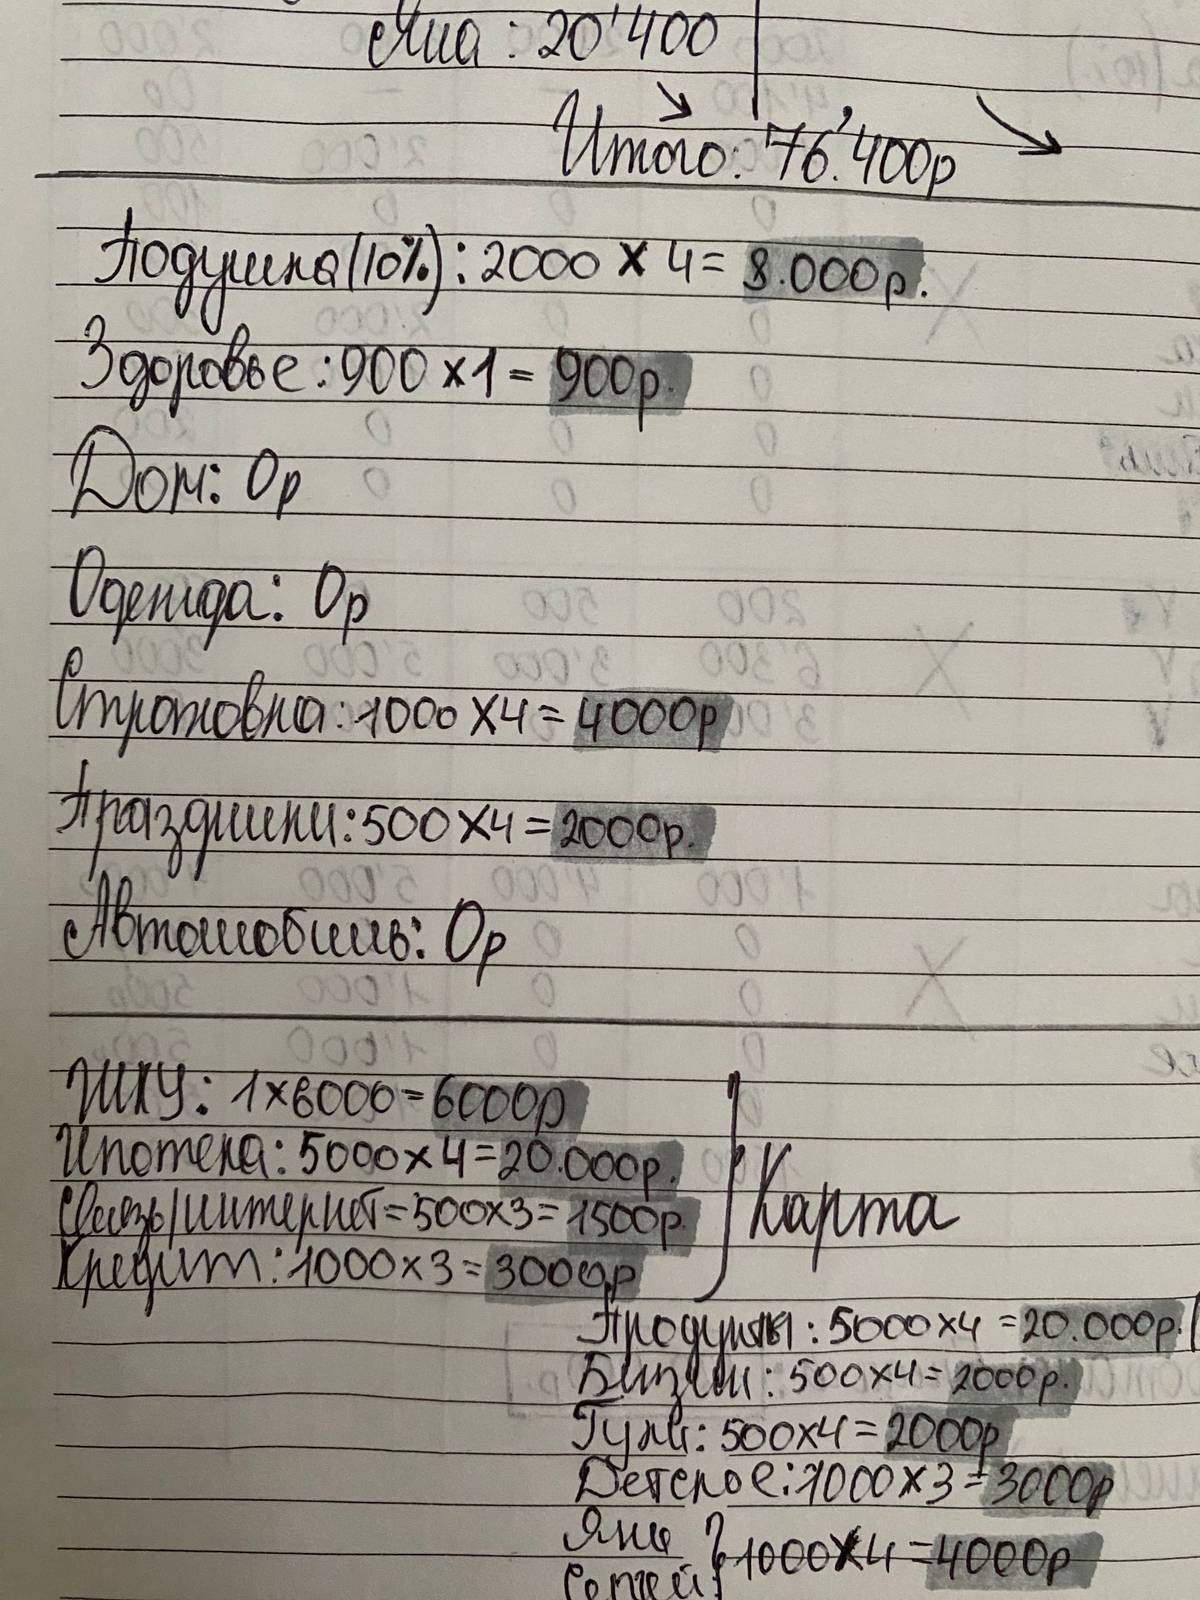 Яна : 20'400
Итого: 76.'400р
Подушка (10%) : 2000 × 4 = 8.000р.
Здоровье : 900 × 1 = 900р.
Дом: 0р
Одежда: 0р
Страховка: 1000 × 4 = 4000р
Праздники: 500 × 4 = 2000р.
Автомобиль: 0р
ЖКУ: 1×6000 = 6000р
Ипотека: 5000 × 4 = 20.000р.
Связь/интернет = 500×3 = 1500р.
Кредит: 1000 × 3 = 3000р
Карта
Продукты: 5000×4 = 20.000р.
Биззи: 500×4 = 2000р.
Гули: 500×4 = 2000р
Детское: 1000 × 3 = 3000р
Яна
Сергей } 1000×4 = 4000р